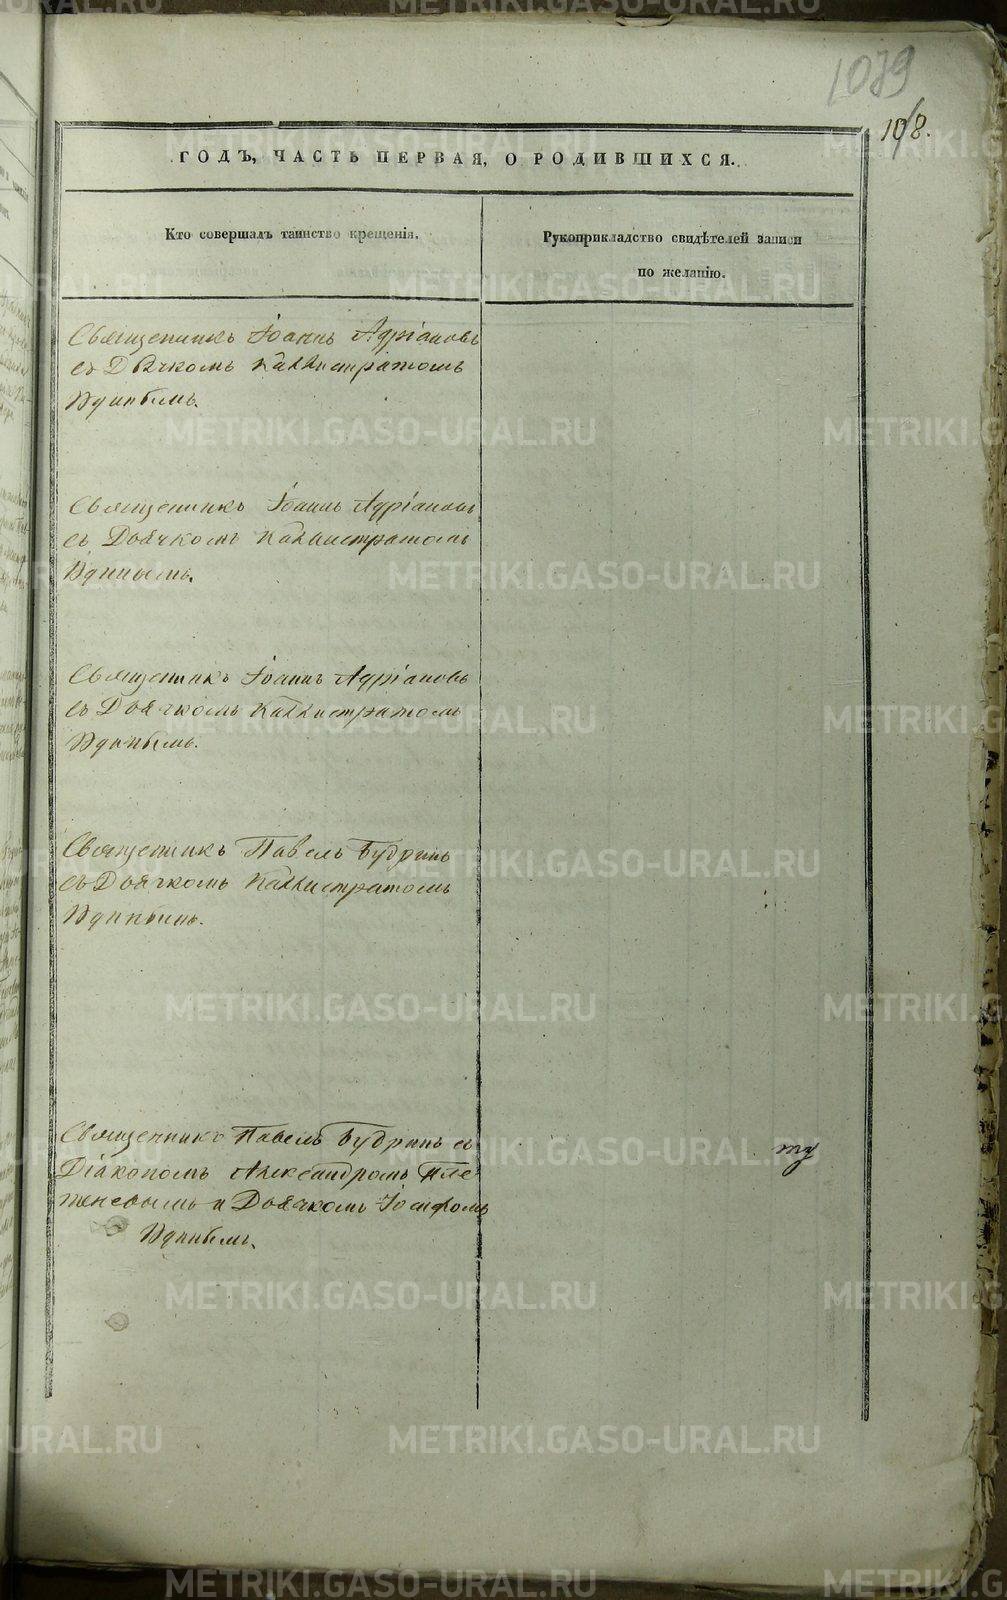 1079
108.
ГОДЪ, ЧАСТЬ ПЕРВАЯ, О РОДИВШИХСЯ.
Кто совершалъ таинство крещенія.
Рукоприкладство свидѣтелей записи
по желанію.
Священникъ Іоаннъ Адріановъ
съ Дьячкомъ Каллистратомъ
Священникъ Іоаннъ Адріановъ
съ Дьячкомъ Каллистратомъ
Священникъ Іоаннъ Адріановъ
съ Дьячкомъ Каллистратомъ
Священникъ Павелъ Будринъ
съ Дьячкомъ Каллистратомъ
Священникъ Павелъ Будринъ съ
Діакономъ Александромъ Пле
теневымъ и Дьячкомъ Іосифомъ
METRIKI.GASO-URAL.RU